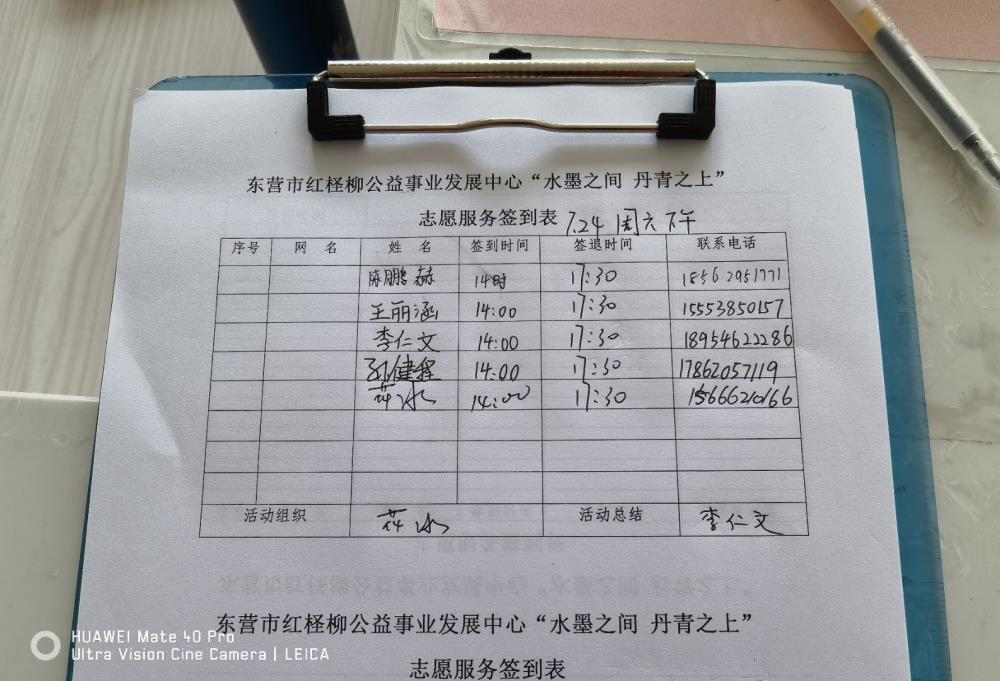 东营市红柽柳公益事业发展中心“水墨之间 丹青之上”
志愿服务签到表 7.24 周六下午
序号 网 名 姓 名 签到时间 签退时间 联系电话
陈鹏赫 14时 17:30 18562951771
王丽涵 14:00 17:30 15553850157
李仁文 14:00 17:30 18954622286
孙健程 14:00 17:30 17862057119
苏冰 14:00 17:30 15666210166
活动组织 苏冰 活动总结 李仁文
东营市红柽柳公益事业发展中心“水墨之间 丹青之上”
志愿服务签到表
HUAWEI Mate 40 Pro
Ultra Vision Cine Camera | LEICA